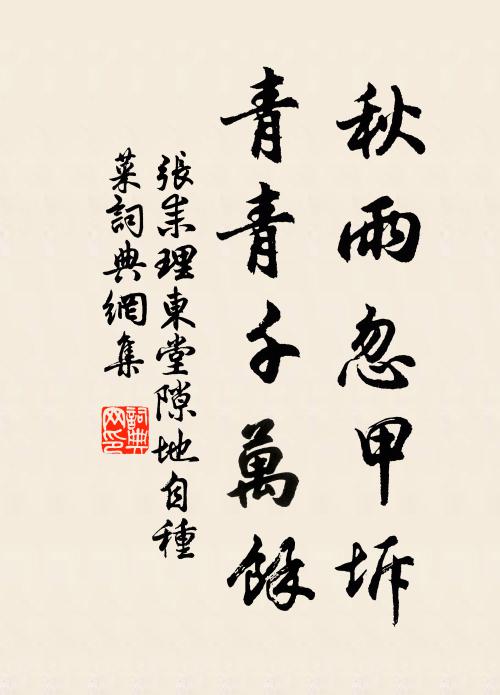 秋雨忽甲坼
青青千萬餘
張耒理東堂隙地自種
菜詞典網集
詞典
网印